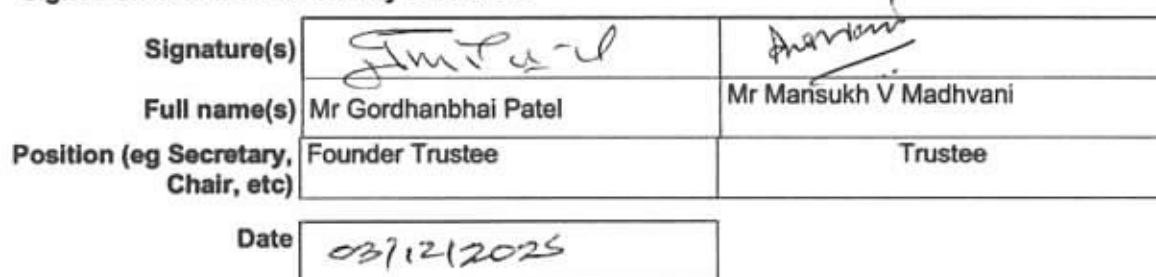 Signature(s)
Full name(s) Mr Gordhanbhai Patel Mr Mansukh V Madhvani
Position (eg Secretary, Founder Trustee Trustee
Chair, etc)
Date 03/12/2025